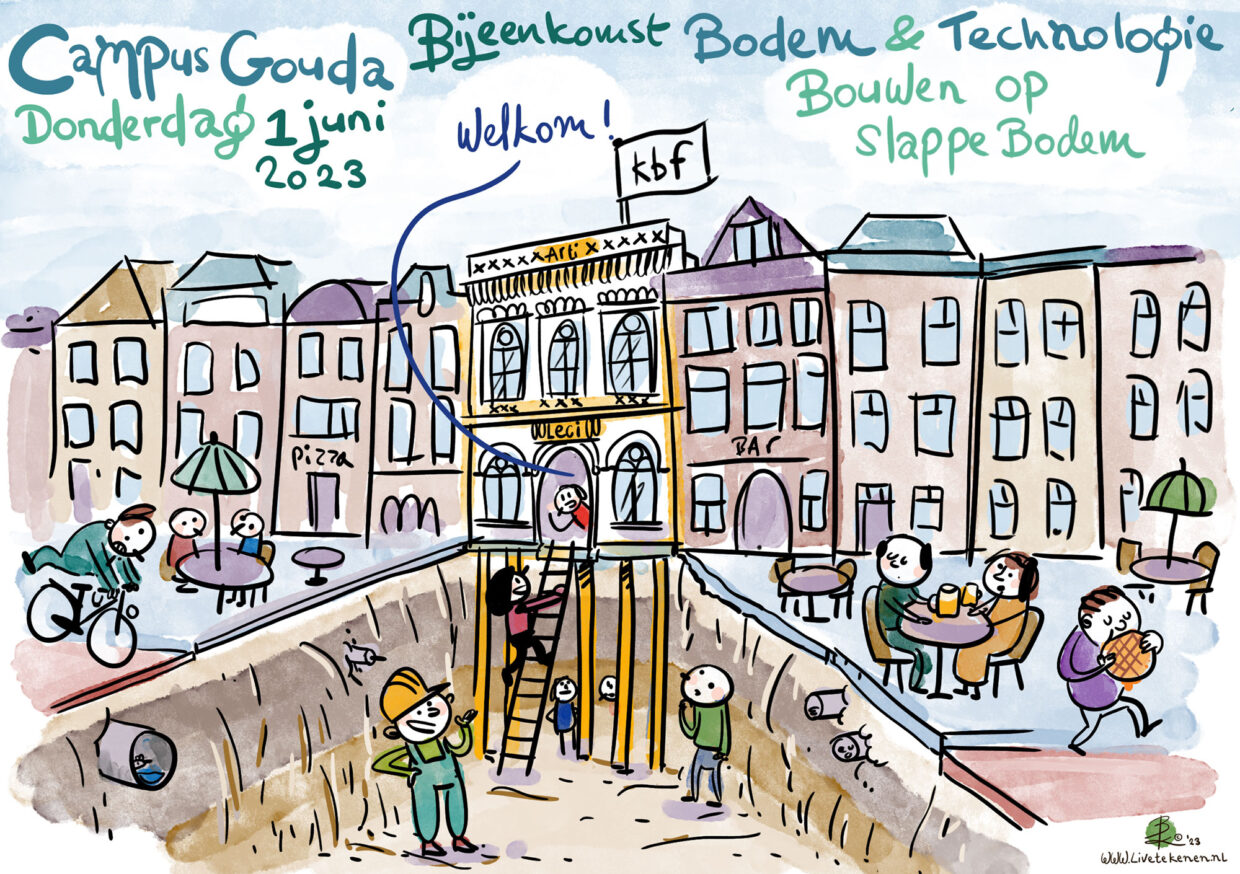 Campus Gouda
Donderdag 1 juni
2023
Bijeenkomst Bodem & Technologie
Bouwen op
slappe Bodem
Welkom!
kbf
xxxxxx Arti xxxxxx
xxx xxx xxx
Legi
pizza
BAR
© '23
www.Livetekenen.nl